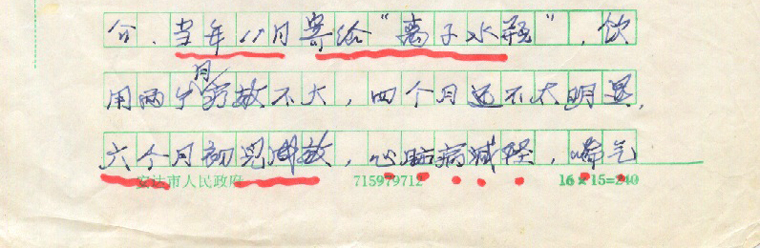 介.当年11月寄给“离子水瓶”,饮
用两个月药效不大,四个月还不大明显,
六个月初见药效,心脏病减轻,喘气
安达市人民政府 715979712 16×15=240